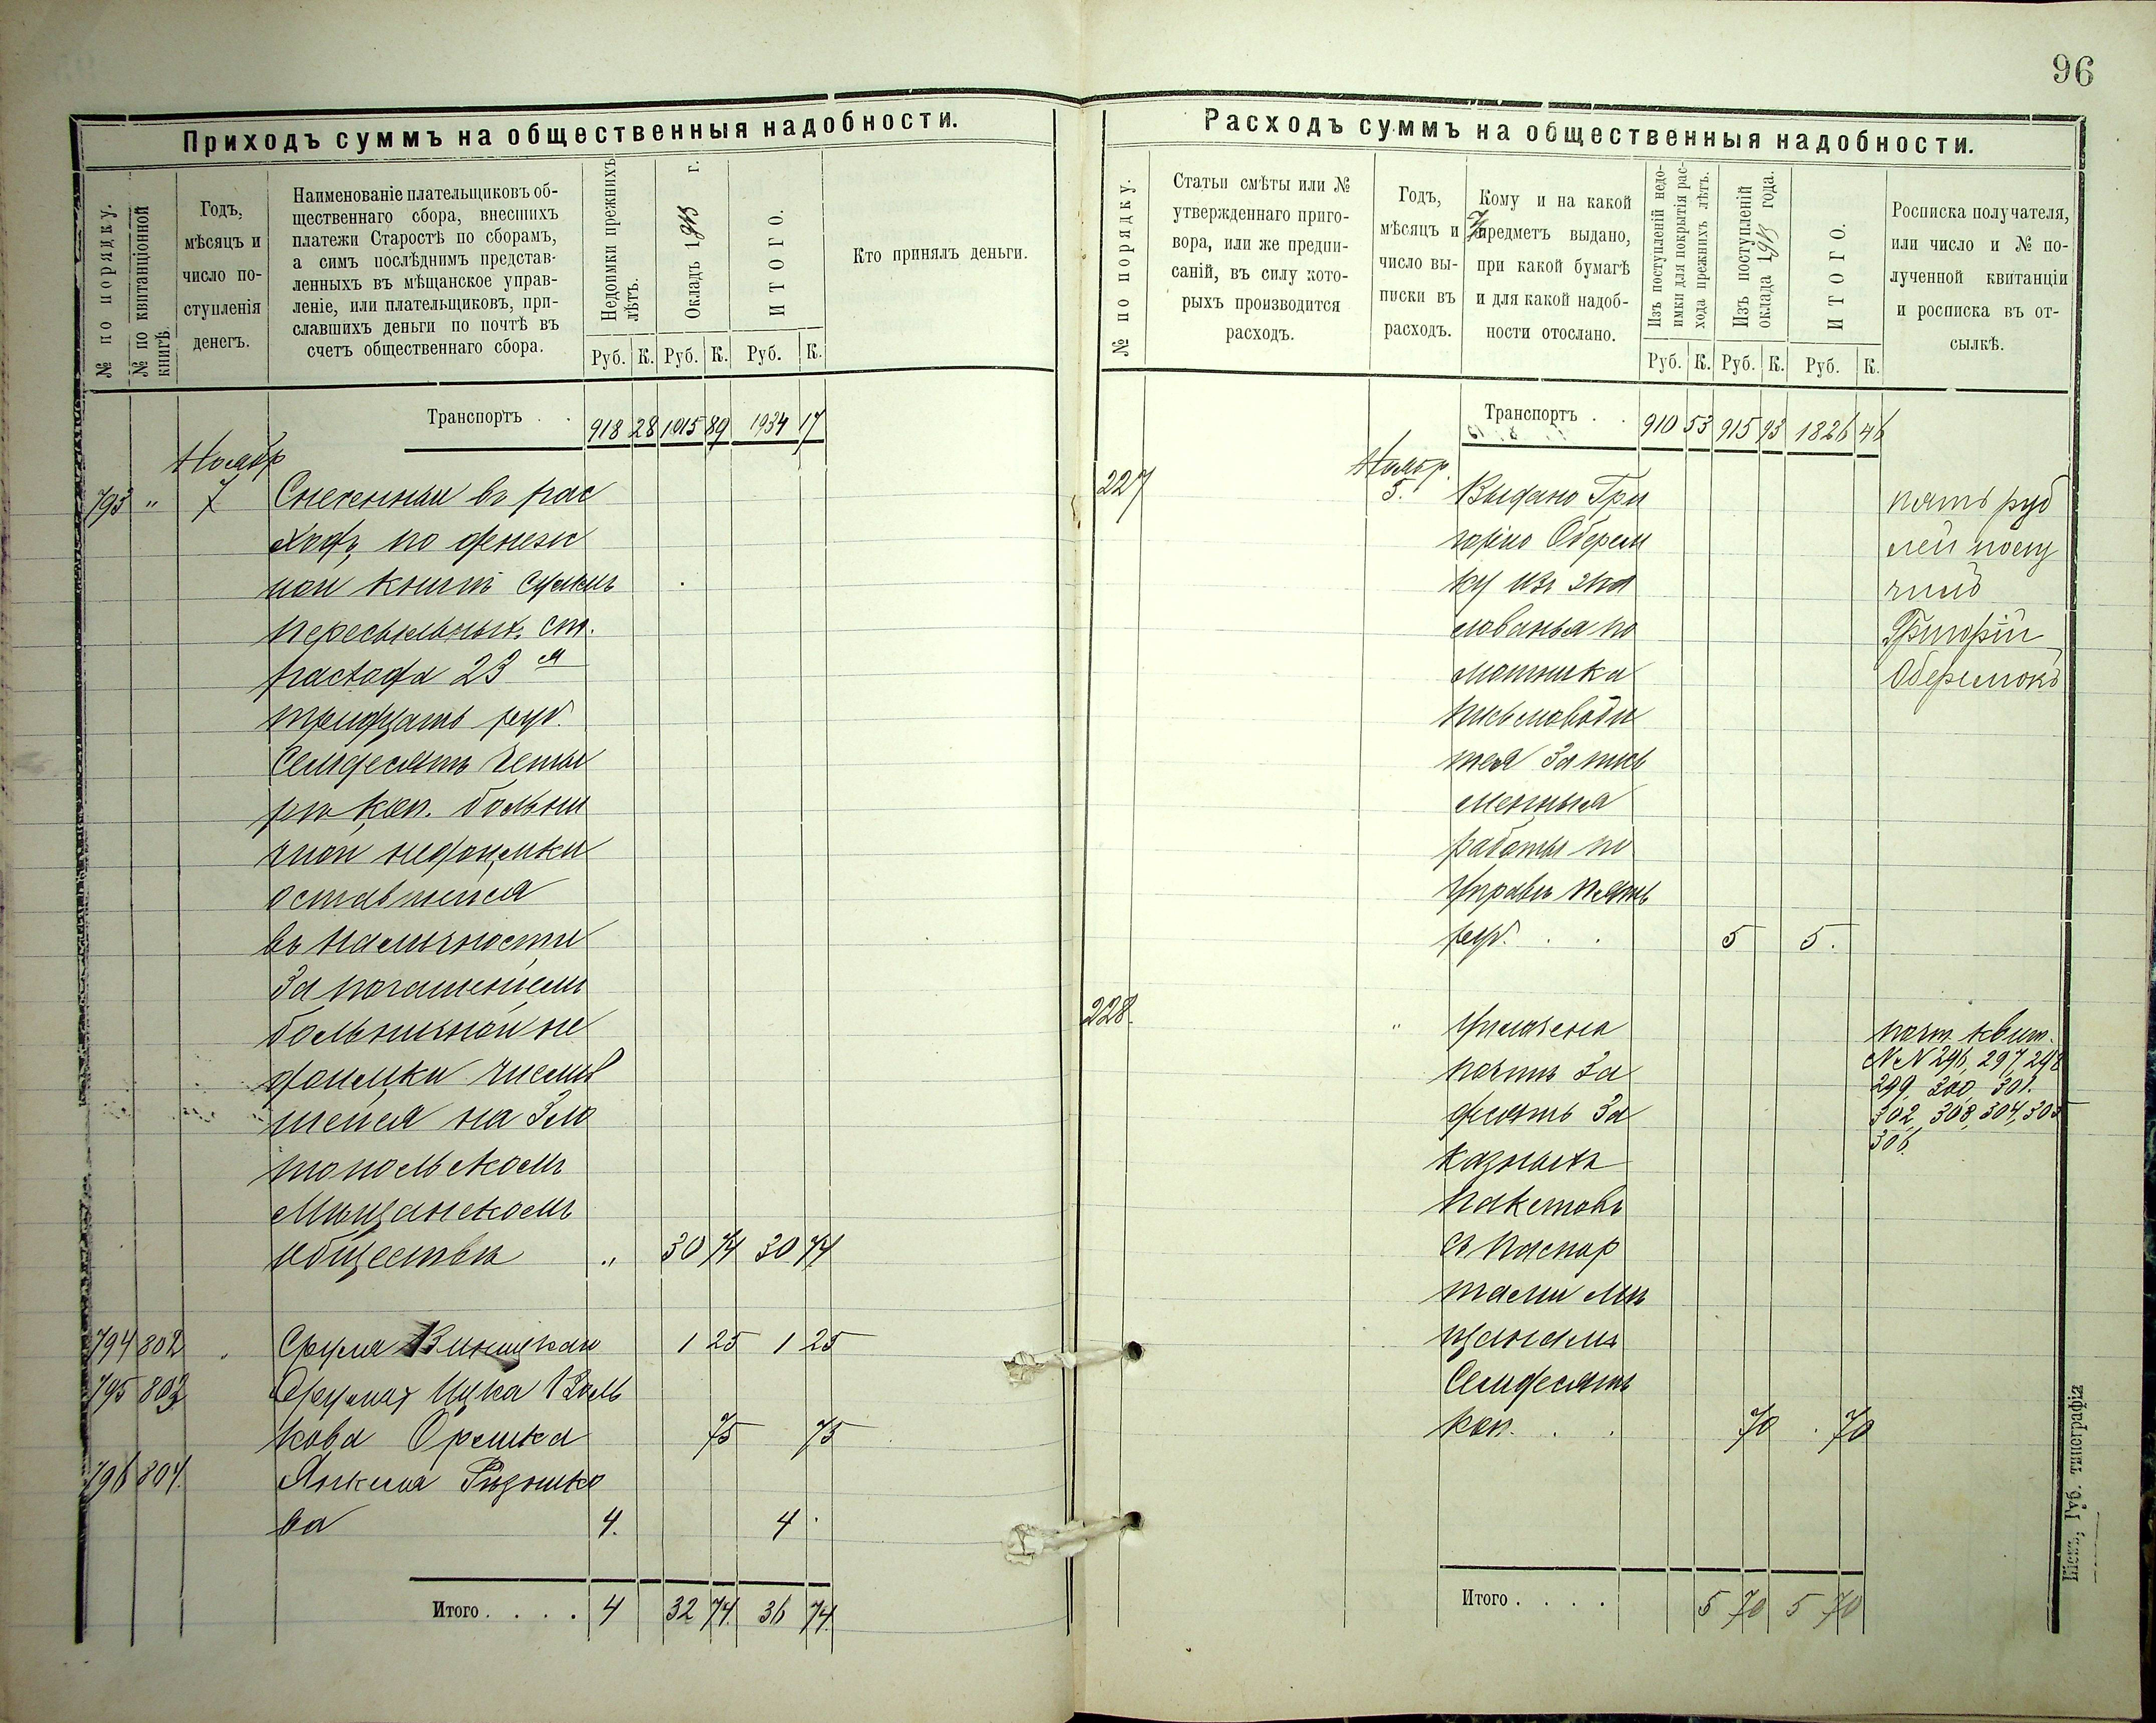 96
Приходъ суммъ на общественныя надобности.
№ по порядку.
№ по квитанціонной книгѣ.
Годъ,
мѣсяцъ и
число по-
ступленія
денегъ.
Наименованіе плательщиковъ об-
щественнаго сбора, внесшихъ
платежи Старостѣ по сборамъ,
а симъ послѣднимъ представ-
ленныхъ въ мѣщанское управ-
леніе, или плательщиковъ, при-
славшихъ деньги по почтѣ въ
счетъ общественнаго сбора.
Недоимки прежнихъ
лѣтъ.
Окладъ 1913 г.
ИТОГО.
Кто принялъ деньги.
Руб. К. Руб. К. Руб. К.
Транспортъ . . 918 28 1015 89 1934 17
Ноябр
793 " 7 Снесенныи въ рас
ходъ по денеж
ной книгѣ суммъ
пересыльныхъ ст.
расхода 23 й
тридцать руб.
Семдесятъ четы
ре коп. больни
чной недоимки
оставшейся
въ наличности
За погашеніемъ
больничной не
доимки числив
шейся на Зло
топольскомъ
Мѣщанскомъ
обществѣ " 30 74 30 74
794 802 Сруля 1 25 1 25
795 803 Ицка Воль
кова 75 75
796 804. Янкеля
ва 4. 4.
Итого . . . . 4 32 74. 36 74.
Расходъ суммъ на общественныя надобности.
№ по порядку.
Статьи смѣты или №
утвержденнаго приго-
вора, или же предпи-
саній, въ силу кото-
рыхъ производится
расходъ.
Годъ,
мѣсяцъ и
число вы-
писки въ
расходъ.
Кому и на какой
предметъ выдано,
при какой бумагѣ
и для какой надоб-
ности отослано.
Изъ поступленій недо-
имки для покрытія рас-
хода прежнихъ лѣтъ.
Изъ поступленій
оклада 1913 года.
ИТОГО.
Росписка получателя,
или число и № по-
лученной квитанціи
и росписка въ от-
сылкѣ.
Руб. К. Руб. К. Руб. К.
Транспортъ . . 910 53 915 93 1826 46
Ноябр.
227 5. Выдано Гри
горію Оберем
ку изъ жа
лованья по
мошника
письмоводи
теля За пись
менныя
работы по
Управѣ пять
руб. . . 5 5.
пять руб
лей полу
чилъ
Григорій
Оберемокъ
228. " Уплачена
почтѣ За
десять За
казныхъ
пакетовъ
съ паспор
тами мѣ
щанамъ
Семдесятъ
коп. . . 70 . 70
почт. квит.
№№ 296, 297, 298
299, 300, 301.
302, 303, 304, 305
306.
Итого . . . . 5 70 5 70
Кіевъ, Губ. типографія